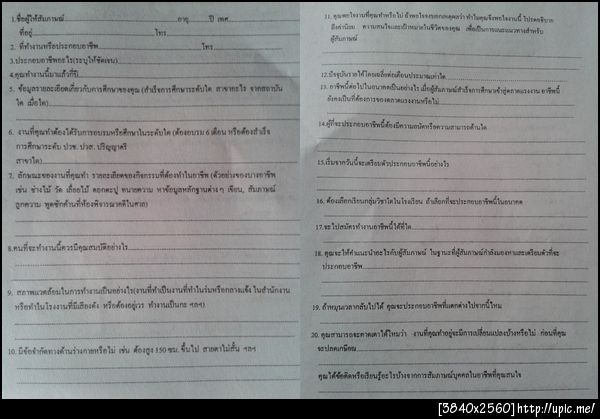 1.ชื่อผู้ให้สัมภาษณ์........อายุ........ปี เพศ........
ที่อยู่........โทร........
2. ที่ทำงานหรือประกอบอาชีพ........โทร........
3.ประกอบอาชีพอะไร(ระบุให้ชัดเจน)........
4.คุณทำงานนี้มาแล้วกี่ปี........
5. ข้อมูลรายละเอียดเกี่ยวกับการศึกษาของคุณ (สำเร็จการศึกษาระดับใด สาขาอะไร จากสถาบัน
ใด เมื่อใด)........
6. งานที่คุณทำต้องได้รับการอบรมหรือศึกษาในระดับใด (ต้องอบรม 6 เดือน หรือต้องสำเร็จ
การศึกษาระดับ ปวช. ปวส. ปริญญาตรี
สาขาใด)........
7. ลักษณะของงานที่คุณทำ รายละเอียดของกิจกรรมที่ต้องทำในอาชีพ (ตัวอย่างของบางอาชีพ
เช่น ช่างไม้ วัด เลื่อยไม้ ตอกตะปู ทนายความ หาข้อมูลหลักฐานต่าง ๆ เขียน, สัมภาษณ์
ลูกความ พูดซักค้านที่ห้องพิจารณาคดีในศาล)
8.คนที่จะทำงานนี้ควรมีคุณสมบัติอย่างไร........
9. สภาพแวดล้อมในการทำงานเป็นอย่างไร(งานที่ทำเป็นงานที่ทำในร่มหรือกลางแจ้ง ในสำนักงาน
หรือทำในโรงงานที่มีเสียงดัง หรือต้องอยู่เวร ทำงานเป็นกะ ฯลฯ)
10. มีข้อจำกัดทางด้านร่างกายหรือไม่ เช่น ต้องสูง 150 ซม. ขึ้นไป สายตาไม่สั้น ฯลฯ
11. คุณพอใจงานที่คุณทำหรือไม่ ถ้าพอใจจงบอกเหตุผลว่า ทำไมคุณจึงพอใจงานนี้ โปรดอธิบาย
ถึงค่านิยม ความสนใจและเป้าหมายในชีวิตของคุณ เพื่อเป็นการแนะแนวทางสำหรับ
ผู้สัมภาษณ์
12.ปัจจุบันรายได้โดยเฉลี่ยต่อเดือนประมาณเท่าใด........
13. อาชีพต่อไปในอนาคตเป็นอย่างไร เมื่อผู้สัมภาษณ์สำเร็จการศึกษาเข้าสู่ตลาดแรงงาน อาชีพนี้
ยังคงเป็นที่ต้องการของตลาดแรงงานหรือไม่........
14.ผู้ที่จะประกอบอาชีพนี้ต้องมีความถนัดหรือความสามารถด้านใด
15.เริ่มจากวันนี้จะเตรียมตัวประกอบอาชีพนี้อย่างไร
16. ต้องเลือกเรียนกลุ่มวิชาใดในโรงเรียน ถ้าเลือกที่จะประกอบอาชีพนี้ในอนาคต
17.จะไปสมัครทำงานอาชีพนี้ได้ที่ใด........
18. คุณจะให้คำแนะนำอะไรกับผู้สัมภาษณ์ ในฐานะที่ผู้สัมภาษณ์กำลังมองหาและเตรียมตัวที่จะ
ประกอบอาชีพ........
19. ถ้าหมุนเวลากลับไปได้ คุณจะประกอบอาชีพที่แตกต่างไปจากนี้ไหม
20. คุณสามารถจะคาดเดาได้ไหมว่า งานที่คุณทำอยู่จะมีการเปลี่ยนแปลงบ้างหรือไม่ ก่อนที่คุณ
จะปลดเกษียณ........
คุณได้ข้อคิดหรือเรียนรู้อะไรบ้างจากการสัมภาษณ์บุคคลในอาชีพที่คุณสนใจ
[3840x2560] http://upic.me/